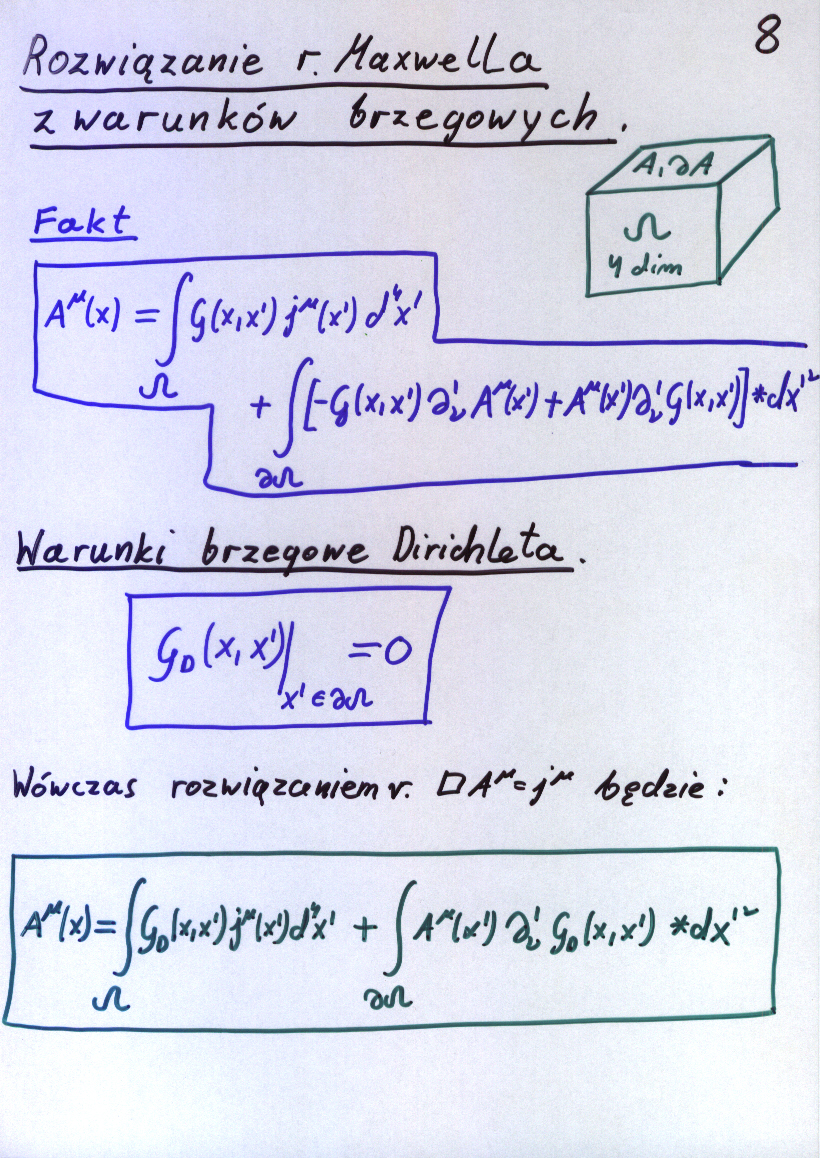 8
Rozwiązanie r. Maxwella
z warunków brzegowych.
A, ∂A
Ω
4 dim
Fakt
A^μ(x) = ∫_Ω G(x,x') j^μ(x') d⁴x'
+ ∫_∂Ω [-G(x,x') ∂'_ν A^μ(x') + A^μ(x') ∂'_ν G(x,x')] *dx'^ν
Warunki brzegowe Dirichleta.
G_D(x, x')|_{x' ∈ ∂Ω} = 0
Wówczas rozwiązaniem r. □A^μ = j^μ będzie:
A^μ(x) = ∫_Ω G_D(x,x') j^μ(x') d⁴x' + ∫_∂Ω A^μ(x') ∂'_ν G_D(x,x') *dx'^ν